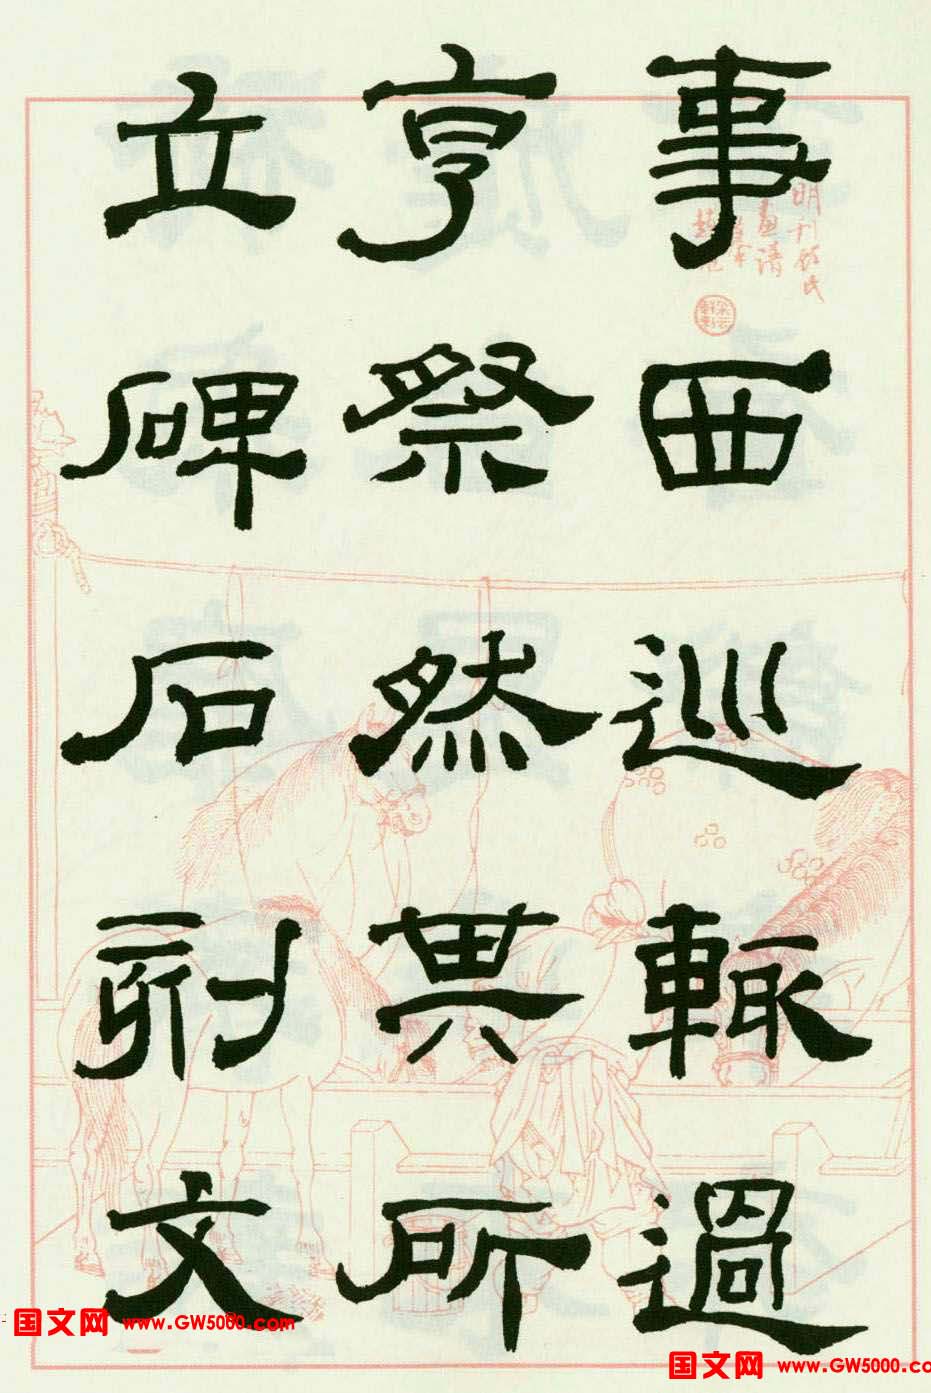 事西巡輒過
亨祭然其所
立碑石刻文
明刊顧氏
畫譜
国文网 www.GW5000.com
国文网 www.GW5000.com